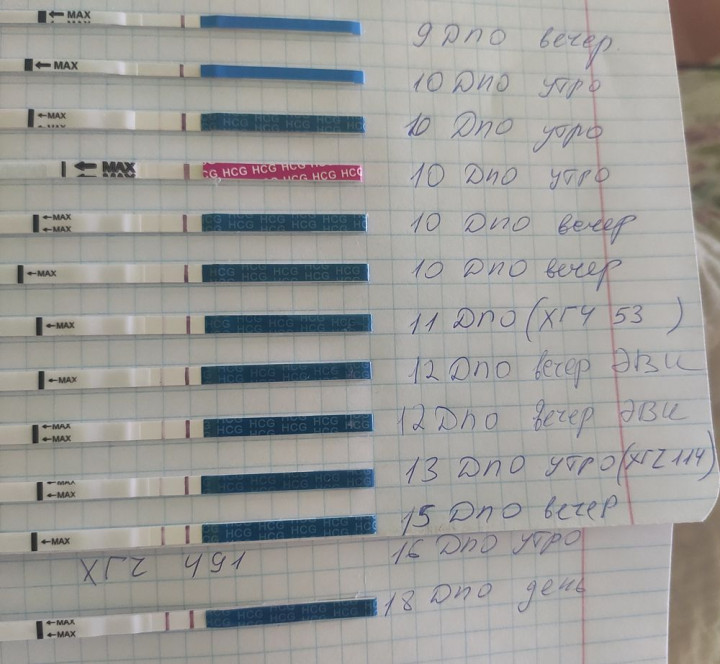 MAX 9 ДПО вечер
MAX 10 ДПО утро
MAX HCG HCG HCG 10 ДПО утро
MAX HCG HCG HCG HCG 10 ДПО утро
MAX MAX HCG HCG HCG 10 ДПО вечер
MAX HCG HCG HCG 10 ДПО вечер
MAX HCG HCG HCG 11 ДПО (ХГЧ 53)
MAX HCG HCG HCG 12 ДПО вечер ЭВИ
MAX MAX HCG HCG HCG 12 ДПО вечер ЭВИ
MAX MAX HCG HCG HCG 13 ДПО утро (ХГЧ 114)
MAX HCG HCG HCG 15 ДПО вечер
ХГЧ 491 16 ДПО утро
MAX MAX HCG HCG HCG 18 ДПО день